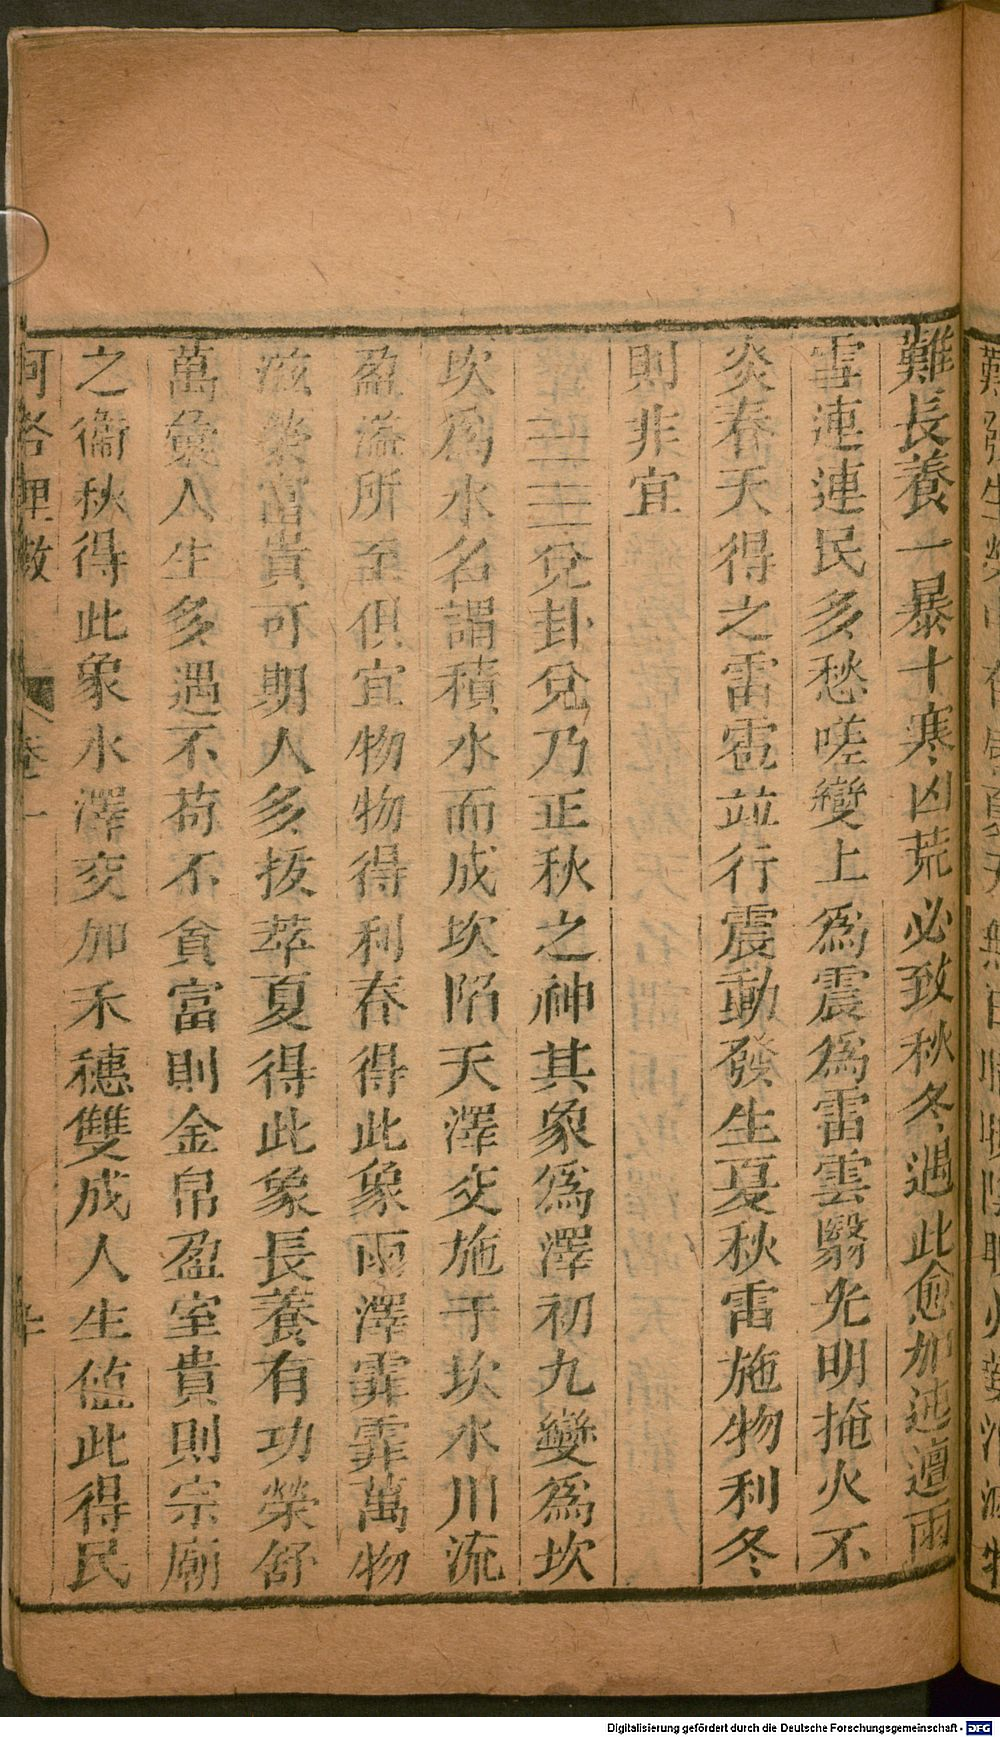 難長養一暴十寒凶荒必致秋冬遇此愈加迍邅雨
雪連連民多愁嗟變上爲震爲雷雲翳光明掩火不
炎春天得之雷雹並行震動發生夏秋雷施物利冬
則非宜
兌卦兌乃正秋之神其象爲澤初九變爲坎
坎爲水名謂積水而成坎陷天澤交施于坎水川流
盈溢所至俱宜物物得利春得此象雨澤霏霏萬物
滋榮富貴可期人多拔萃夏得此象長養有功榮舒
萬彙人生多遇不苟不貪富則金帛盈室貴則宗廟
之衞秋得此象水澤交加禾穗雙成人生值此得民
河洛理數 卷一
Digitalisierung gefördert durch die Deutsche Forschungsgemeinschaft - DFG